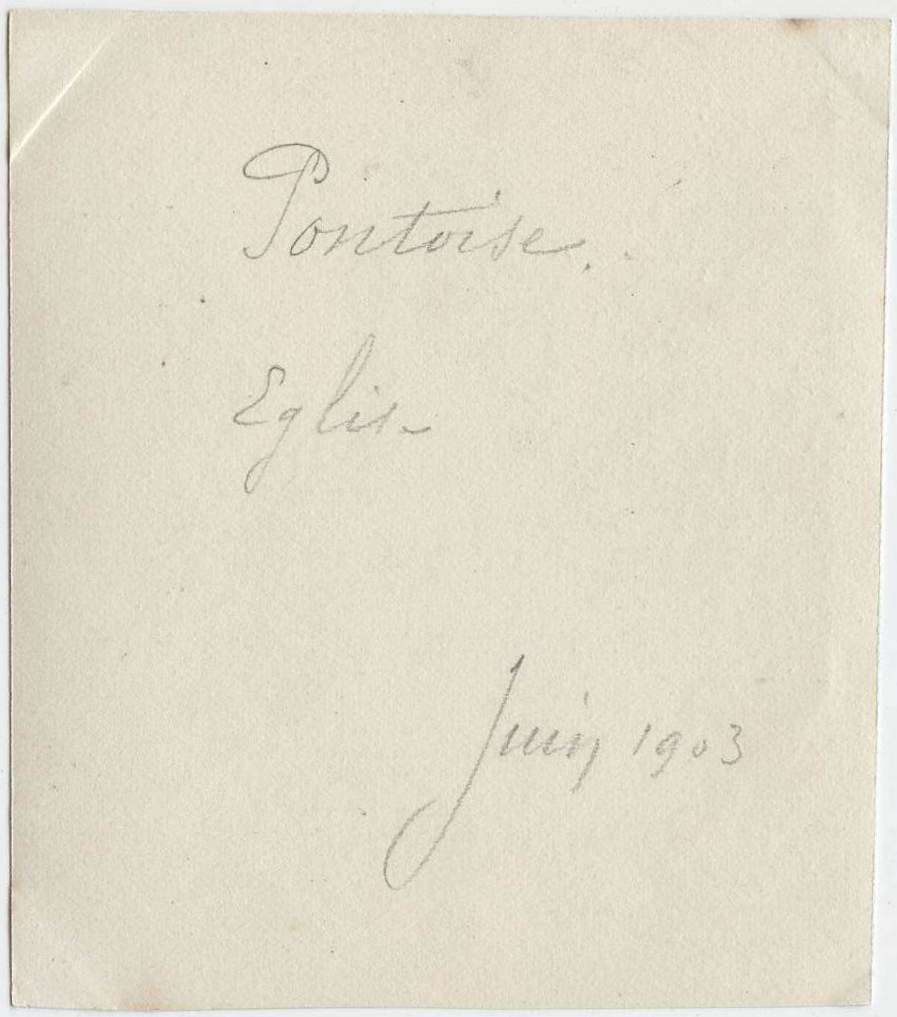 Pontoise.
Eglise
Juin 1903